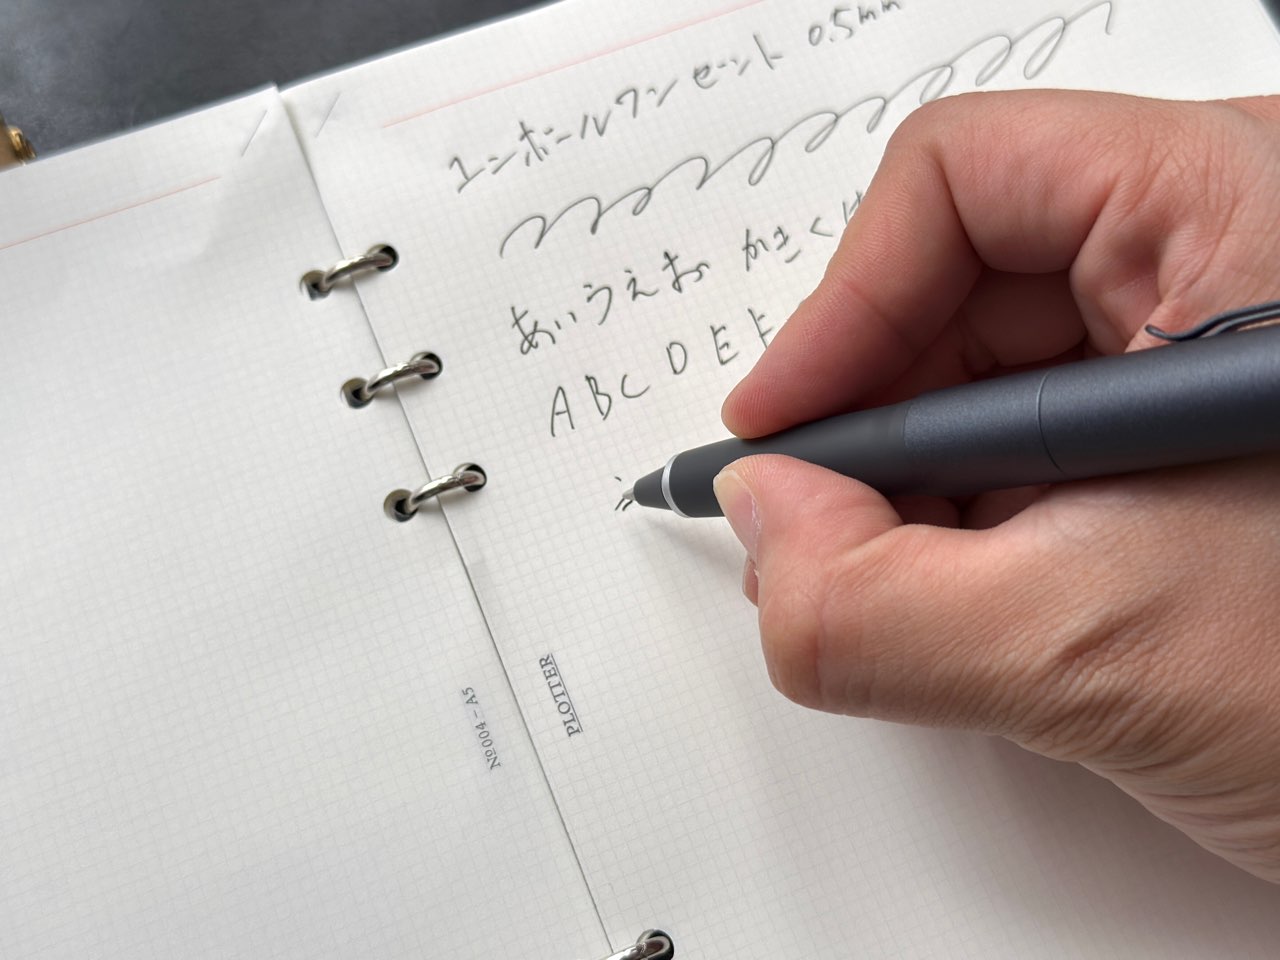 ユニボールワン ゼント 0.5mm
あいうえお かきくけ
ABCDEF
PLOTTER
№004-A5